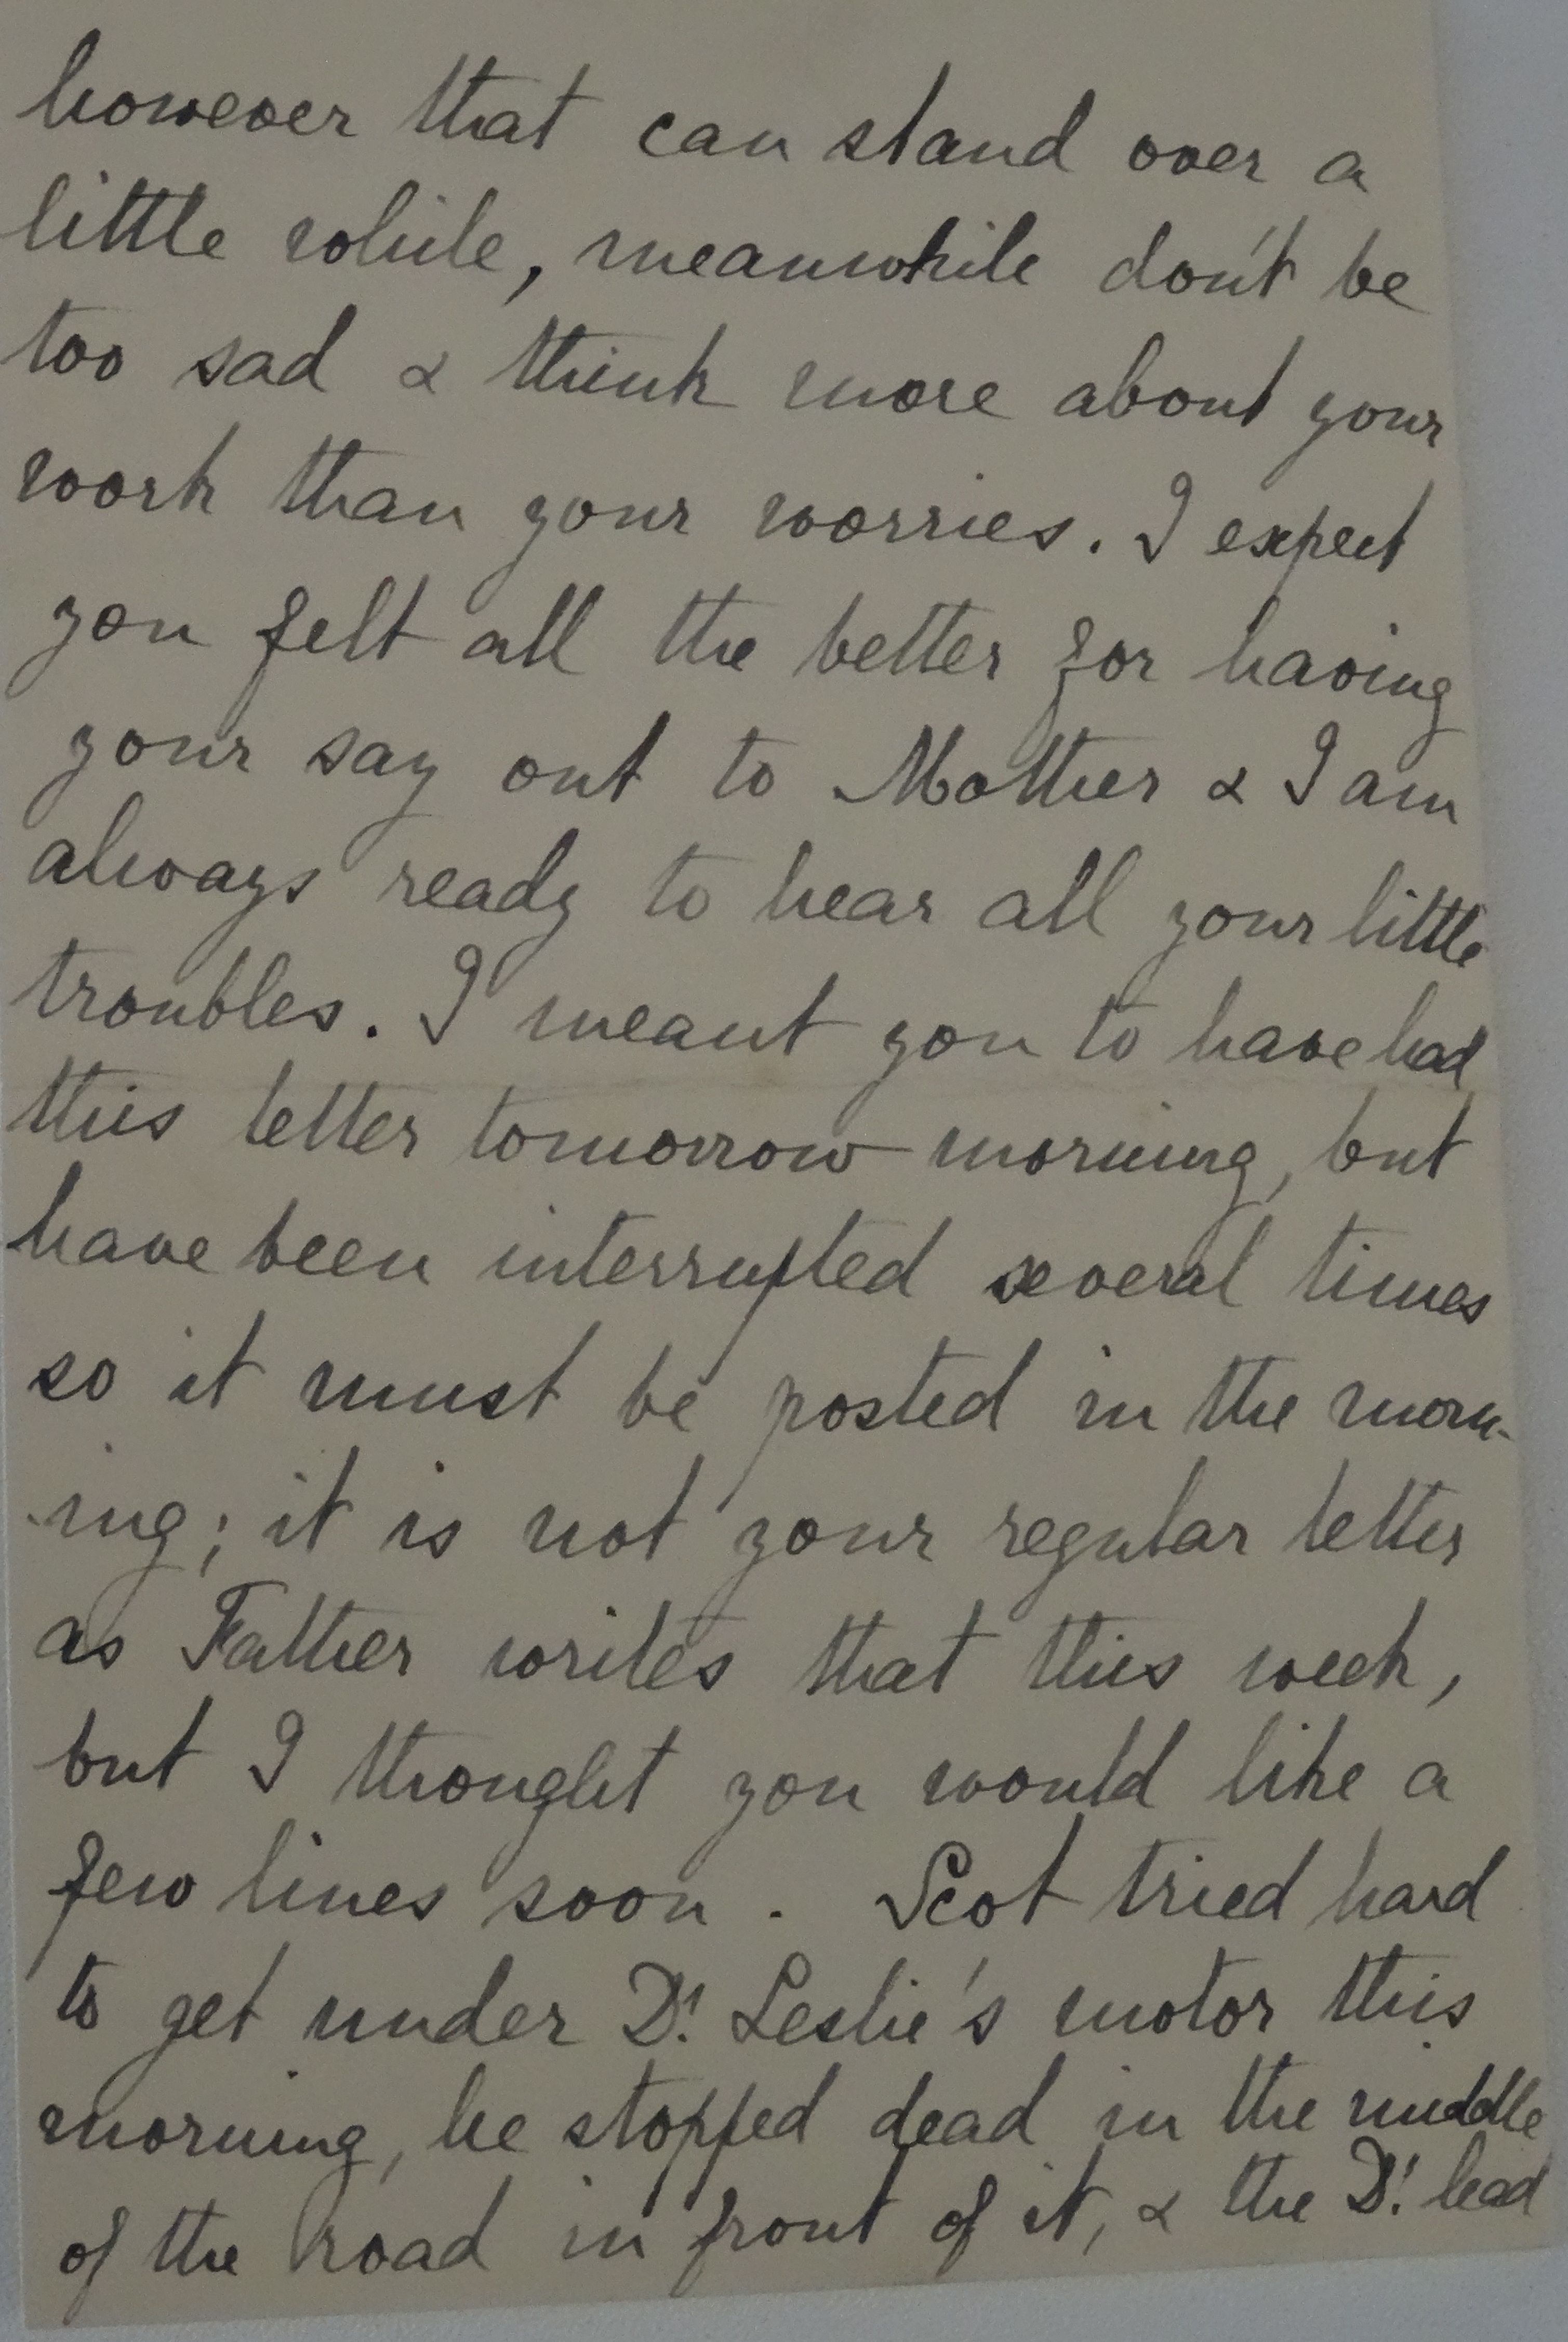 however that can stand over a
little while, meanwhile don't be
too sad & think more about your
work than your worries. I expect
you felt all the better for having
your say out to Mother & I am
always ready to hear all your little
troubles. I meant you to have had
this letter tomorrow morning, but
have been interrupted several times
so it must be posted in the morn-
ing; it is not your regular letter
as Father writes that this week,
but I thought you would like a
few lines soon. Scot tried hard
to get under Dr. Leslie's motor this
morning, he stopped dead in the middle
of the road in front of it, & the Dr. lead